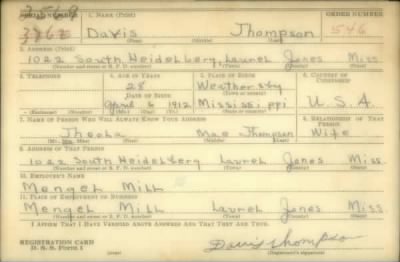 SERIAL NUMBER 1. NAME (Print) ORDER NUMBER
Davis Thompson 546
(First) (Middle) (Last)
2. ADDRESS (Print)
1022 South Heidelberg, Laurel Jones Miss.
(Number and street or R. F. D. number) (Town) (County) (State)
3. TELEPHONE 4. AGE IN YEARS 5. PLACE OF BIRTH 6. COUNTRY OF CITIZENSHIP
28 Weathersby
DATE OF BIRTH (Town or county)
April 6 1912 Mississippi U.S.A.
(Exchange) (Number) (Mo.) (Day) (Yr.) (State or country)
7. NAME OF PERSON WHO WILL ALWAYS KNOW YOUR ADDRESS 8. RELATIONSHIP OF THAT PERSON
Mae Thompson Wife
(Mr., Mrs., Miss) (First) (Middle) (Last)
9. ADDRESS OF THAT PERSON
1022 South Heidelberg Laurel Jones Miss.
(Number and street or R. F. D. number) (Town) (County) (State)
10. EMPLOYER'S NAME
Mengel Mill
11. PLACE OF EMPLOYMENT OR BUSINESS
Mengel Mill Laurel Jones Miss.
(Number and street or R. F. D. number) (Town) (County) (State)
I AFFIRM THAT I HAVE VERIFIED ABOVE ANSWERS AND THAT THEY ARE TRUE.
REGISTRATION CARD
D. S. S. Form 1
Davis Thompson
(Registrant's signature)